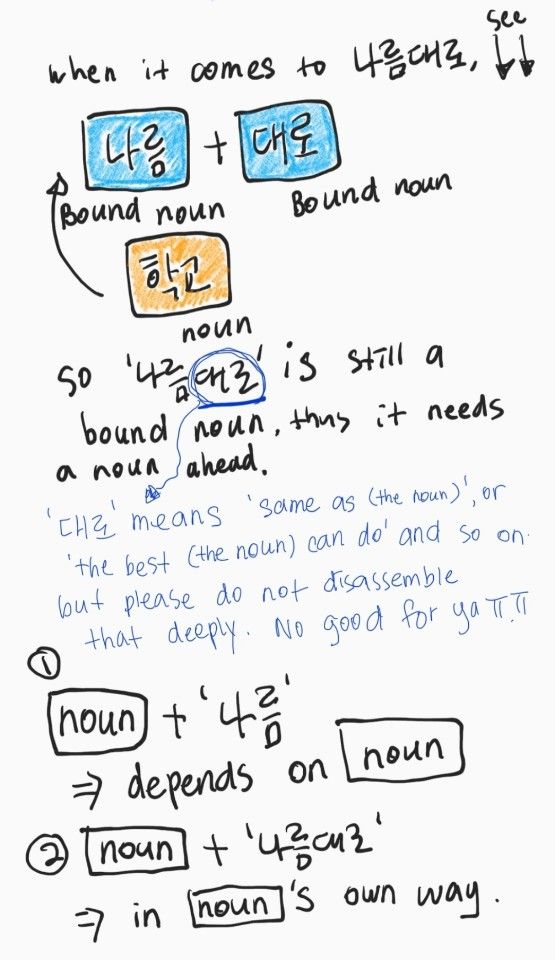 see
when it comes to 나름대로, ↓↓
나름 + 대로
Bound noun Bound noun
학교
noun
so '나름대로' is still a
bound noun, thus it needs
a noun ahead.
'대로' means 'same as (the noun)', or
'the best (the noun) can do' and so on.
but please do not disassemble
that deeply. No good for ya ㅠ.ㅠ
①
noun + '나름'
⇒ depends on noun
② noun + '나름대로'
⇒ in noun's own way.